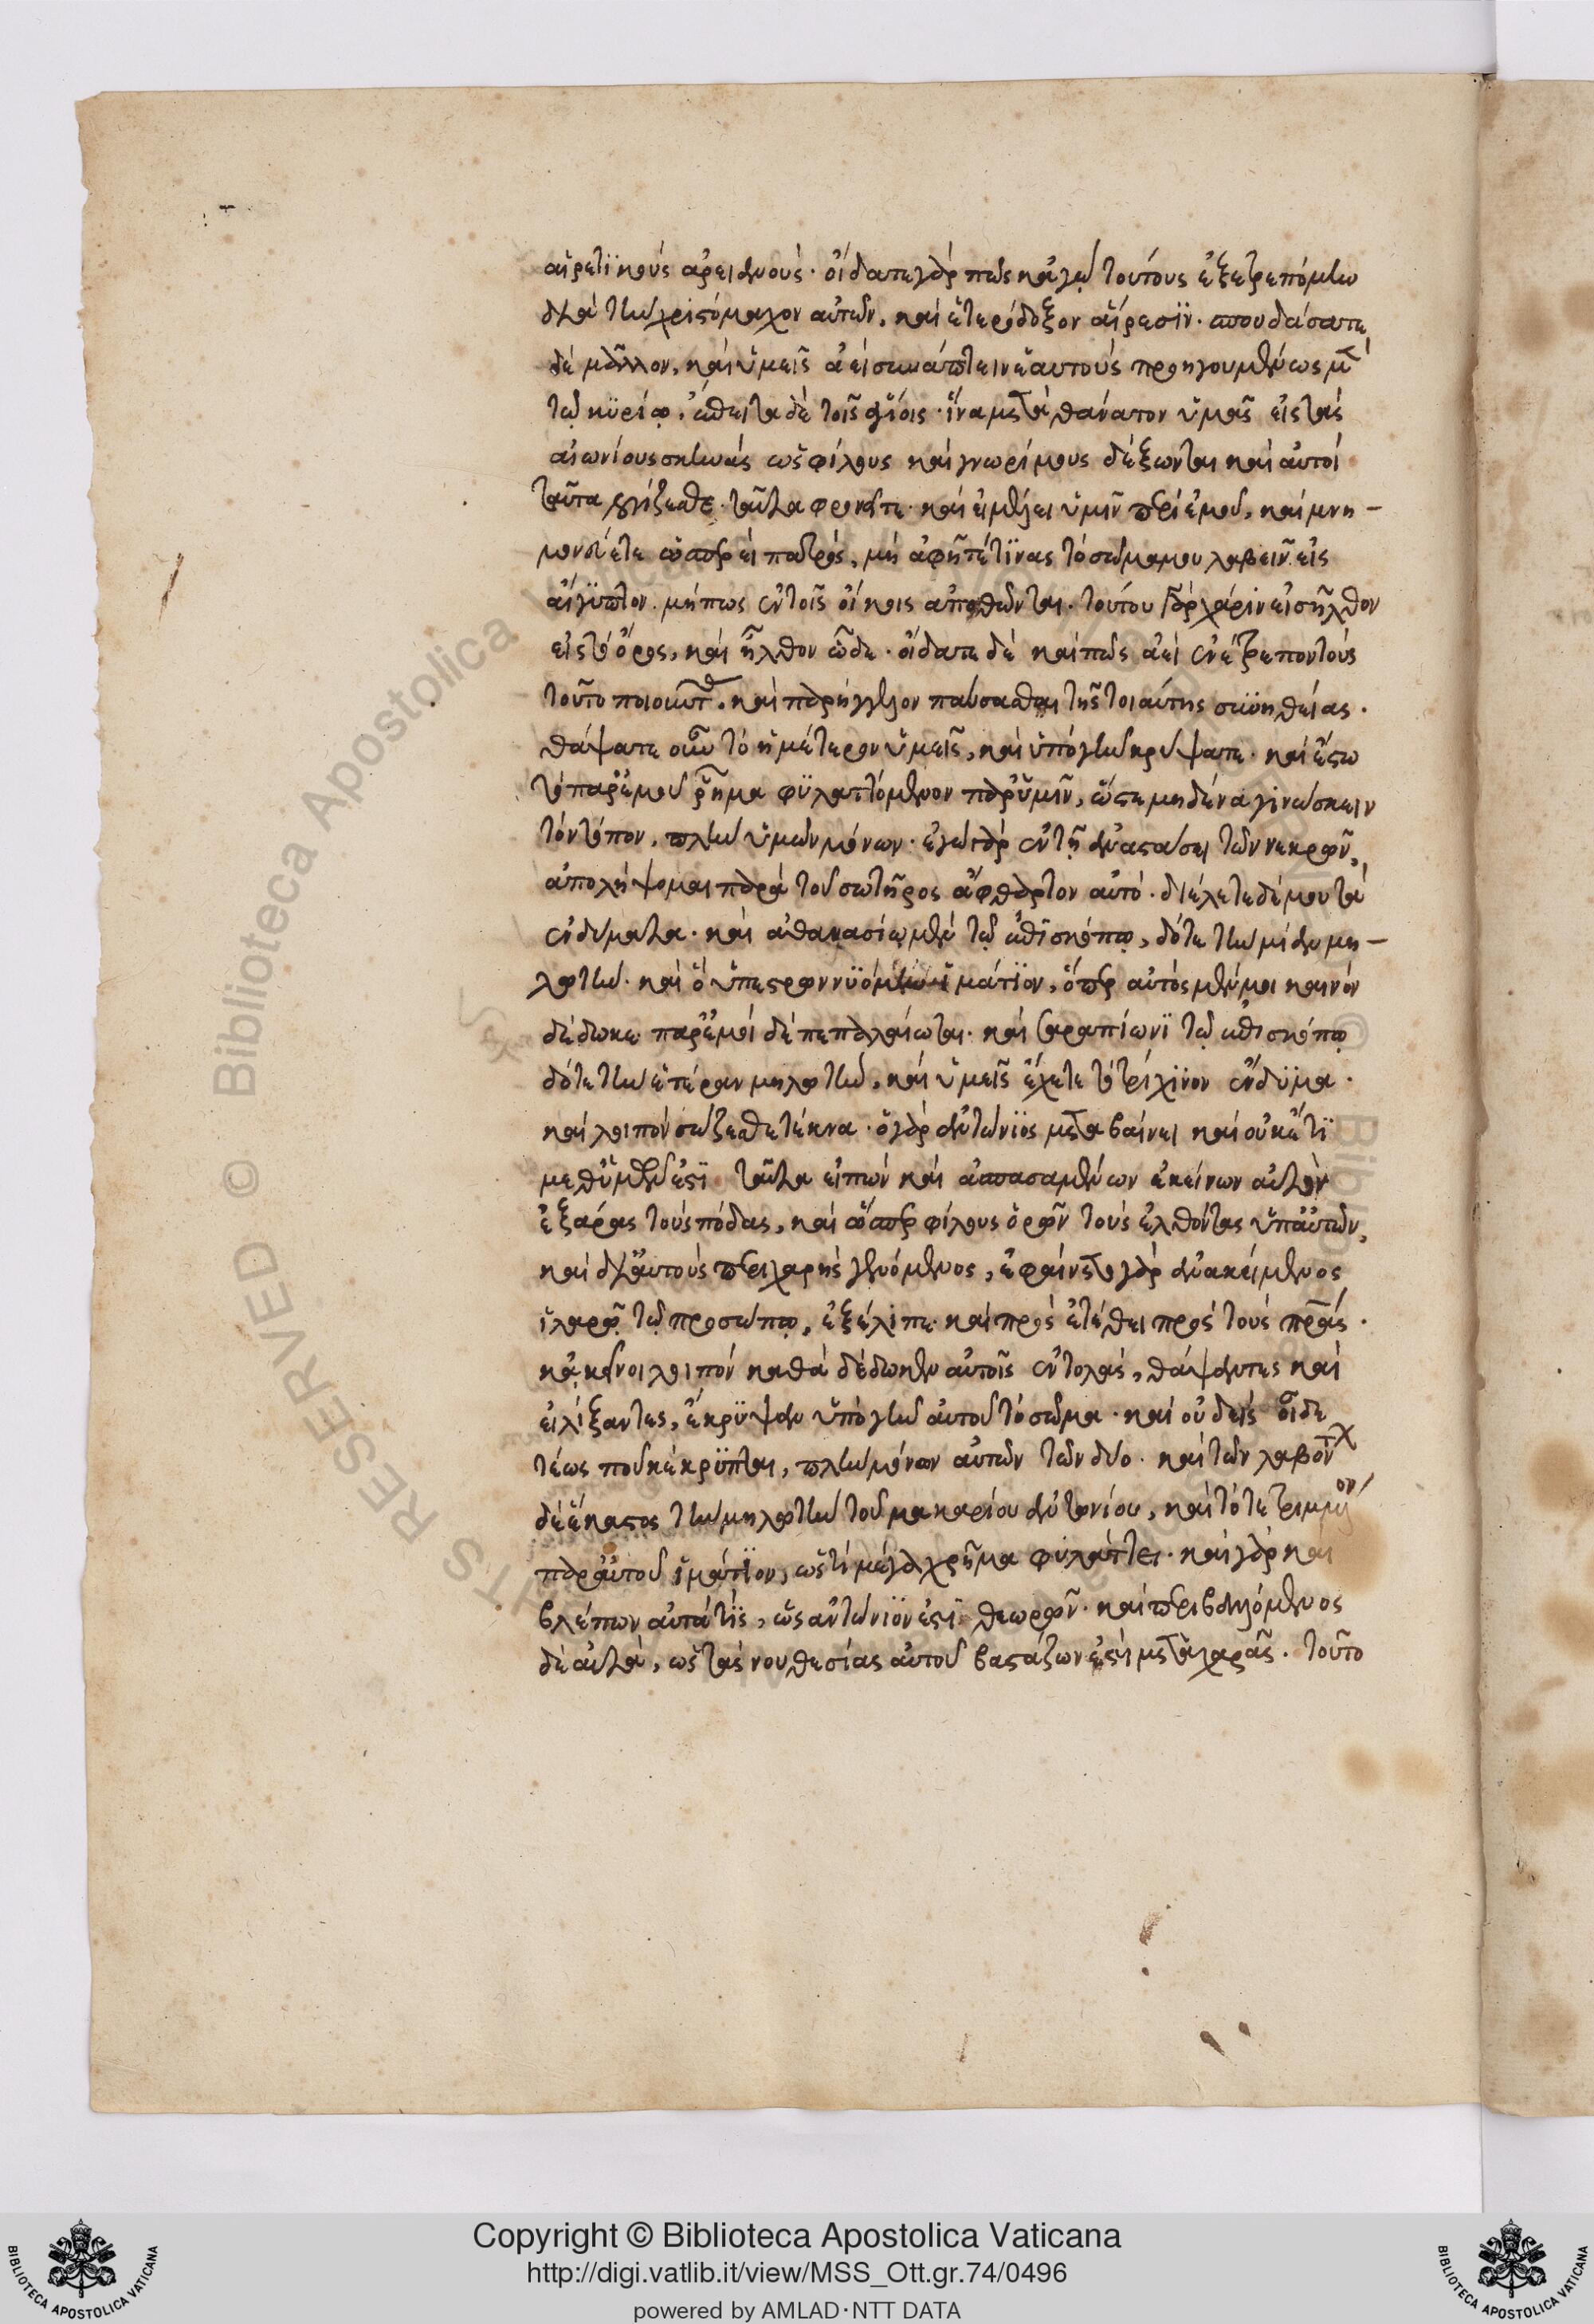 αἱρετϊκοὺς ἀρειανούς· οἴδατε γὰρ πῶς κἀγὼ τούτους ἐξετρεπόμην
διὰ τὴν χριστόμαχον αὐτῶν, καὶ ἑτερόδοξον αἵρεσϊν· σπουδάσατε
δὲ μᾶλλον, καὶ ὑμεῖς ἀεὶ συνάπτειν ἑαυτοὺς προηγουμένως μὲν
τῷ κϋρίῳ, ἔπειτα δὲ τοῖς ἁγίοις· ἵνα μετὰ θάνατον ὑμᾶς εἰς τὰς
αἰωνίους σκηνὰς ὡς φίλους καὶ γνωρίμους δέξωνται καὶ αὐτοί
ταῦτα λογίζεσθε· ταῦτα φρονεῖτε· καὶ εἰ μέλει ὑμῖν περὶ ἐμοῦ, καὶ μνη-
μονεύετε ὥσπερ εἰ πατρός, μὴ ἀφῆτέ τϊνας τὸ σῶμα μου λαβεῖν εἰς
αἴγϋπτον· μήπως ἐν τοῖς οἴκοις ἀποθῶνται· τούτου γὰρ χάριν εἰσῆλθον
εἰς τὸ ὄρος, καὶ ἦλθον ὧδε· οἴδατε δὲ καὶ πῶς ἀεὶ ἐνέτρεπον τοὺς
τοῦτο ποιοῦντ· καὶ παρήγγελλον παύσασθαι τῆς τοιαύτης συνηθείας·
θάψατε οὖν τὸ ἡμέτερον ὑμεῖς, καὶ ὑπὸ γῆν κρύψατε· καὶ ἔστω
τὸ παρ' ἐμοῦ ῥῆμα φϋλαττόμενον παρ' ὑμῖν, ὥστε μηδένα γινώσκειν
τὸν τόπον, πλὴν ὑμῶν μόνων· ἐγὼ γὰρ ἐν τῇ ἀναστάσει τῶν νεκρῶν,
ἀπολήψομαι παρὰ τοῦ σωτῆρος ἄφθαρτον αὐτό· διέλετε δέ μου τὰ
ἐνδύματα· καὶ ἀθανασίῳ μὲν τῷ ἐπισκόπῳ, δότε τὴν μίαν μη-
λωτὴν· καὶ ὃ ὑπεστρωννϋόμην ἱμάτϊον, ὅπερ αὐτὸς μέν μοι καινὸν
δέδωκε παρ' ἐμοὶ δὲ πεπαλαίωται· καὶ σαραπίωνϊ τῷ ἐπισκόπῳ
δότε τὴν ἑτέραν μηλωτὴν, καὶ ὑμεῖς ἔχετε τὸ τρίχϊνον ἔνδϋμα·
καὶ λοιπὸν σώζεσθε τέκνα· ὁ γὰρ ἀντώνϊος μεταβαίνει καὶ οὐκέτϊ
μεθ' ὑμῶν ἐστϊ ταῦτα εἰπὼν καὶ ἀσπασαμένων ἐκείνων αὐτὸν
ἐξαράς τοὺς πόδας, καὶ ὥσπερ φίλους ὁρῶν τοὺς ἐλθόντας ὑπ' αὐτῶν,
καὶ δι' αὐτοὺς περιχαρὴς γενόμενος, ἐφαίνετο γὰρ ἀνακείμενος
ἱλαρῷ τῷ προσώπῳ, ἐξέλιπε καὶ προσετέθει πρὸς τοὺς πρᾱς·
κἀκεῖνοι λοιπὸν καθὰ δέδωκεν αὐτοῖς ἐντολὰς, θάψαντες καὶ
εἱλίξαντες, ἔκρϋψαν ὑπὸ γῆν αὐτοῦ τὸ σῶμα· καὶ οὐδεὶς οἶδε
τέως ποῦ κέκρϋπται, πλὴν μόνων αὐτῶν τῶν δύο· καὶ τῶν λαβόντ
δὲ ἕκαστος τὴν μηλωτὴν τοῦ μακαρίου ἀντωνίου, καὶ τὸ τετριμμένον
παρ' αὐτοῦ ἱμάτϊον, ὥς τι μέγα χρῆμα φυλάττει· καὶ γὰρ καὶ
βλέπων αὐτά τϊς, ὡς ἀντώνϊόν ἐστϊ θεωρῶν· καὶ περιβαλλόμενος
δὲ αὐτὰ, ὡς τὰς νουθεσίας αὐτοῦ βαστάζων ἐστὶ μετὰ χαρᾶς. τοῦτο
Copyright © Biblioteca Apostolica Vaticana
http://digi.vatlib.it/view/MSS_Ott.gr.74/0496
powered by AMLAD·NTT DATA